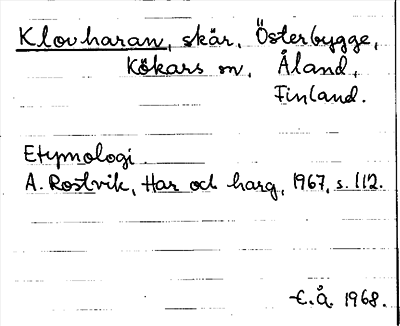 Klovharan, skär, Österbygge,
Kökars sn, Åland,
Finland.
Etymologi
A. Rostvik, Har och harg, 1967, s. 112.
E.Å. 1968.